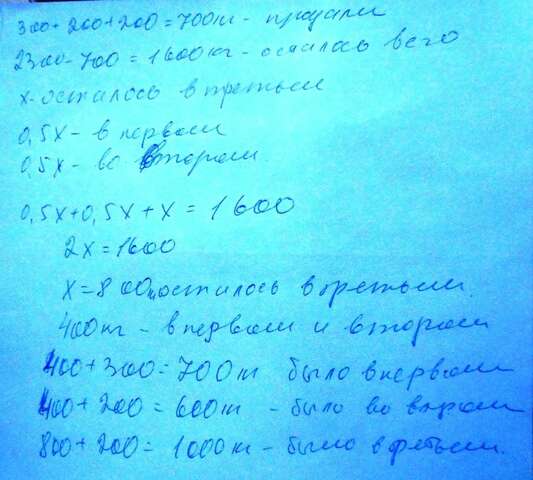 300+200+200=700кг - продали
2300-700=1600кг - осталось всего
х-осталось в третьем
0,5х - в первом
0,5х - во втором.
0,5х+0,5х+х=1600
2х=1600
х=800кг осталось в третьем.
400кг - в первом и втором
400+300=700кг было в первом
400+200=600кг - было во втором
800+200=1000кг - было в третьем.